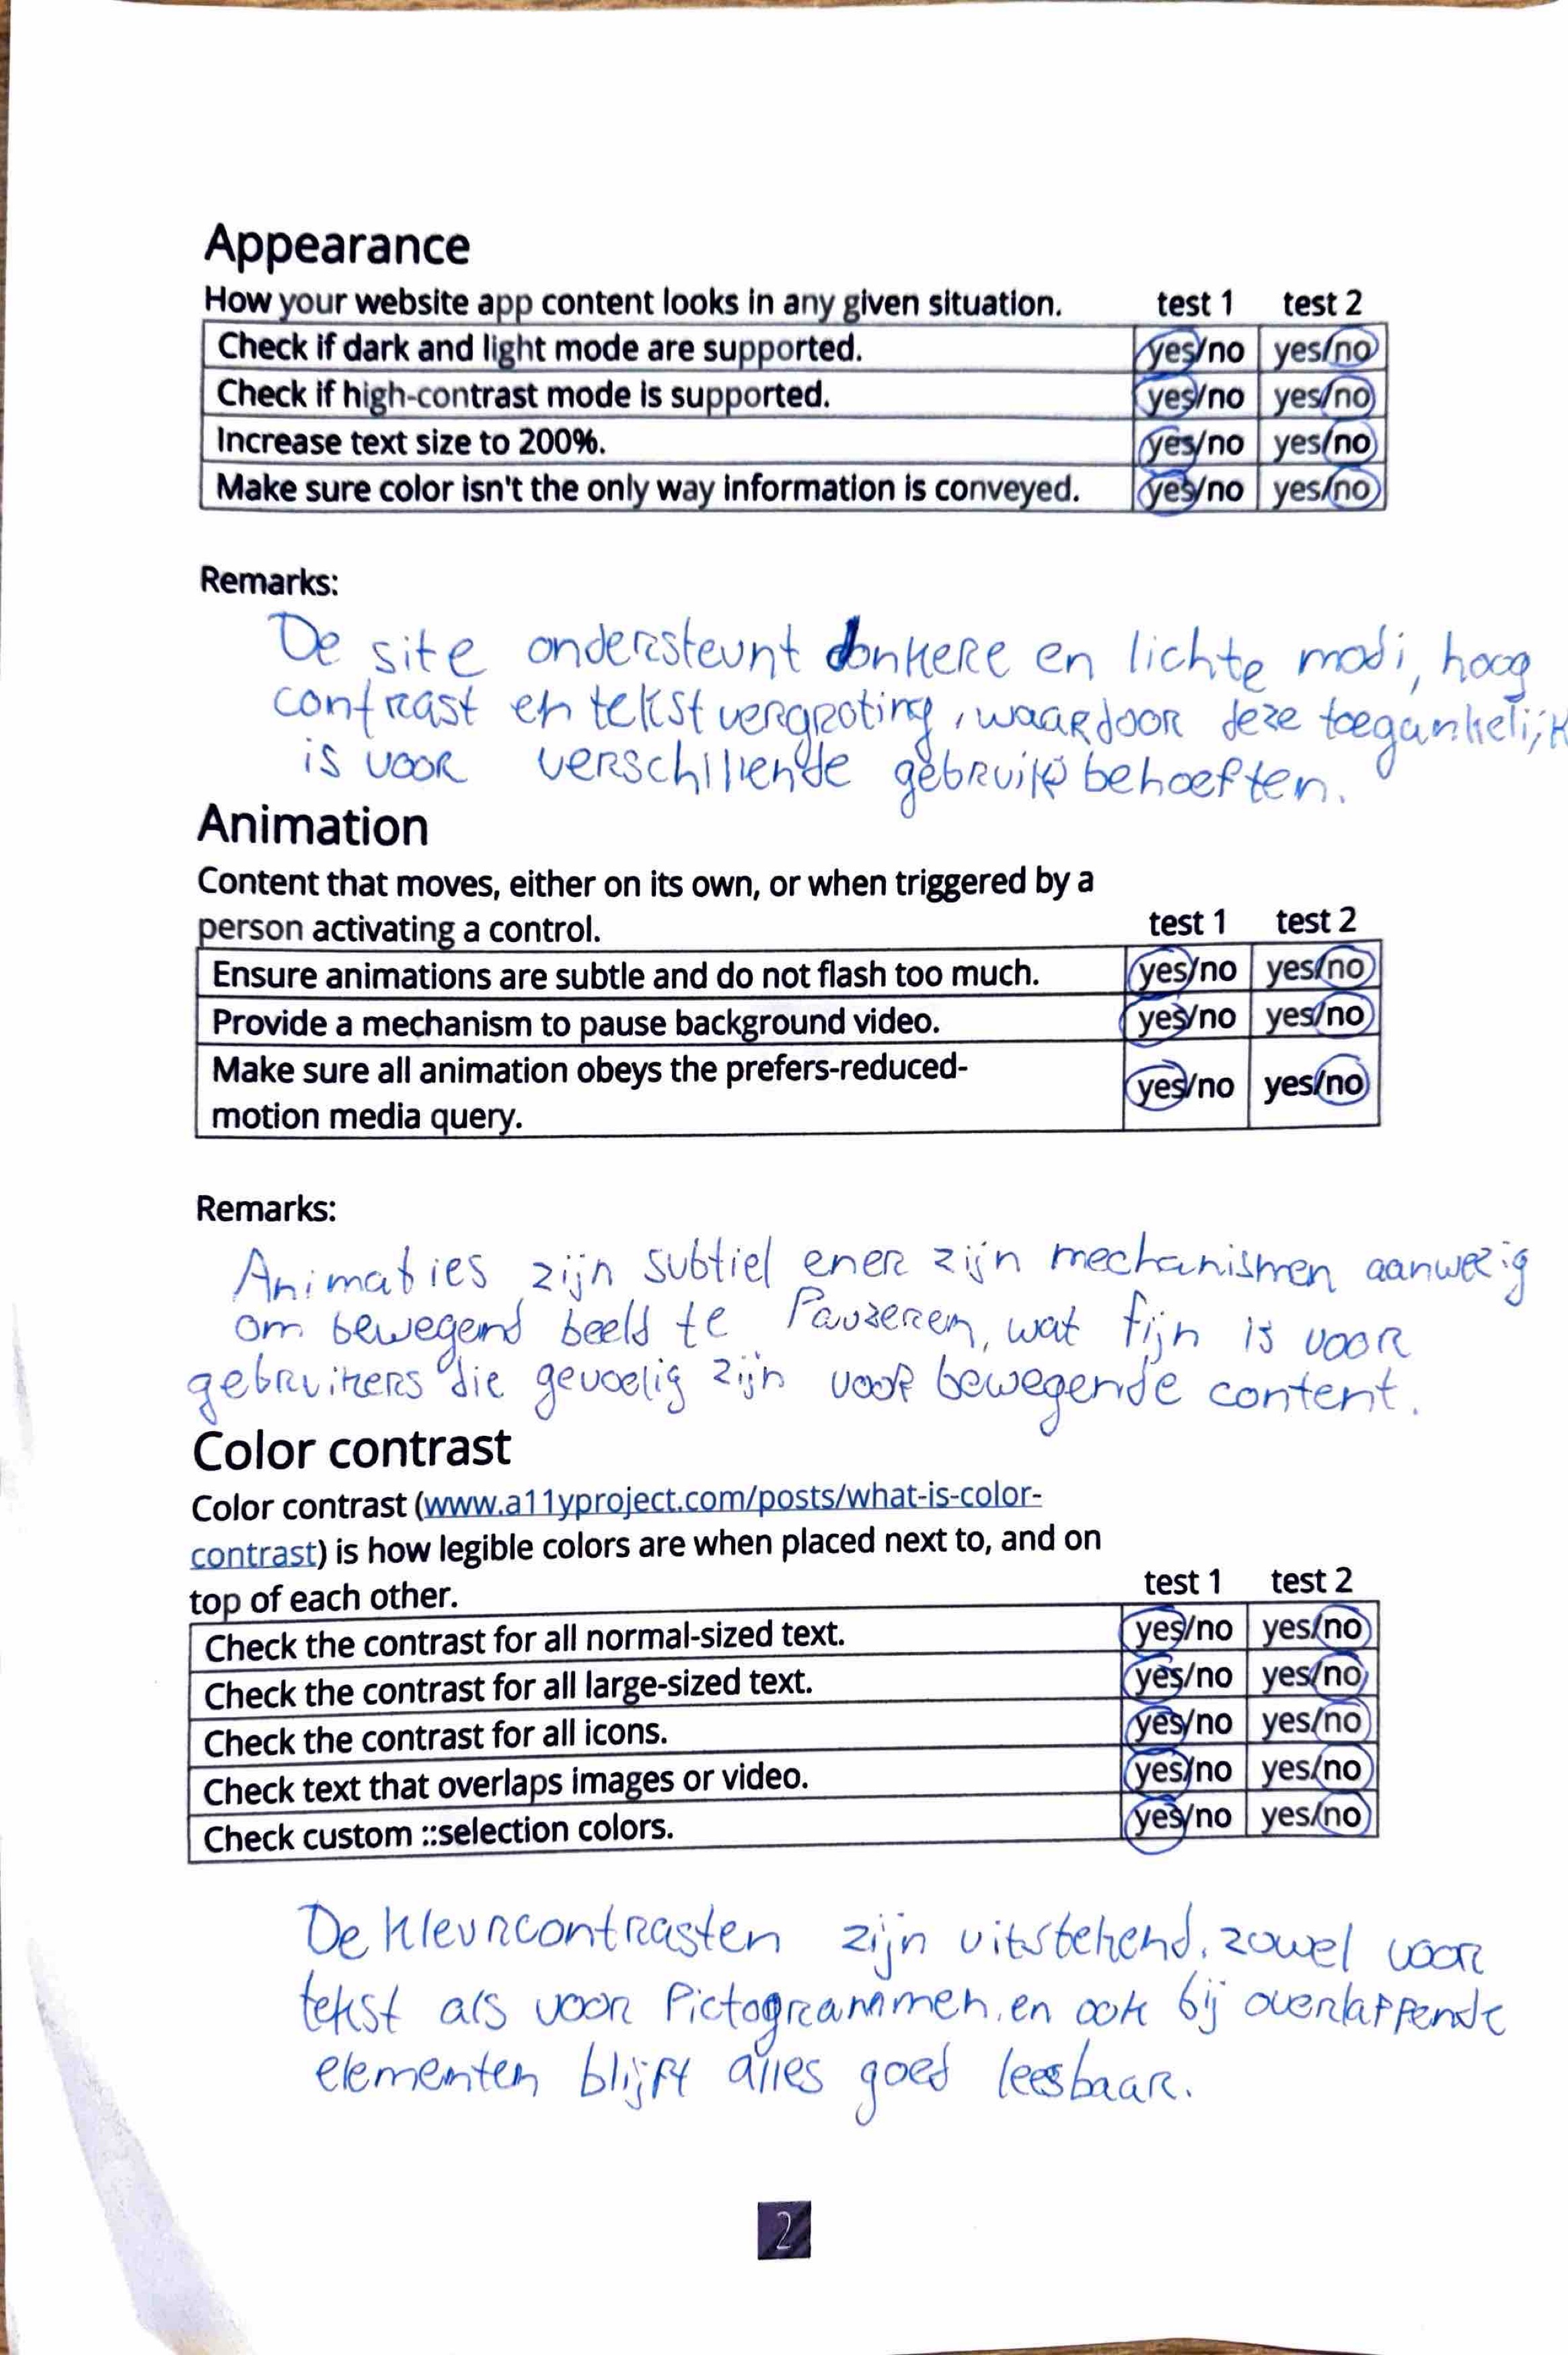 Appearance
How your website app content looks in any given situation. test 1 test 2
Check if dark and light mode are supported. yes/no yes/no
Check if high-contrast mode is supported. yes/no yes/no
Increase text size to 200%. yes/no yes/no
Make sure color isn't the only way information is conveyed. yes/no yes/no
Remarks:
De site ondersteunt donkere en lichte modi, hoog
contrast en tekstvergroting, waardoor deze toegankelijk
is voor verschillende gebruik behoeften.
Animation
Content that moves, either on its own, or when triggered by a
person activating a control. test 1 test 2
Ensure animations are subtle and do not flash too much. yes/no yes/no
Provide a mechanism to pause background video. yes/no yes/no
Make sure all animation obeys the prefers-reduced-
motion media query. yes/no yes/no
Remarks:
Animaties zijn subtiel en er zijn mechanismen aanwezig
om bewegend beeld te Pauzeren, wat fijn is voor
gebruikers die gevoelig zijn voor bewegende content.
Color contrast
Color contrast (www.a11yproject.com/posts/what-is-color-
contrast) is how legible colors are when placed next to, and on
top of each other. test 1 test 2
Check the contrast for all normal-sized text. yes/no yes/no
Check the contrast for all large-sized text. yes/no yes/no
Check the contrast for all icons. yes/no yes/no
Check text that overlaps images or video. yes/no yes/no
Check custom ::selection colors. yes/no yes/no
De kleurcontrasten zijn uitstekend, zowel voor
tekst als voor Pictogrammen, en ook bij overlappende
elementen blijft alles goed leesbaar.
2